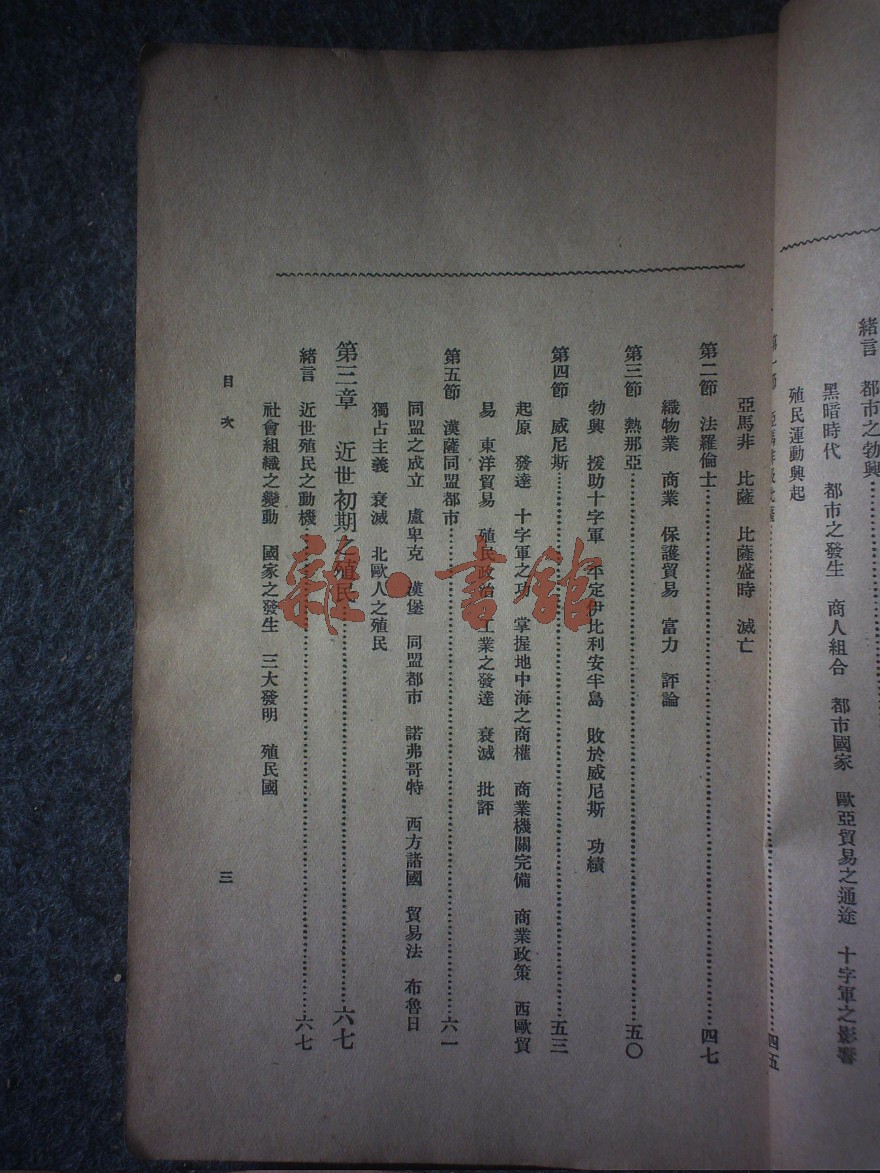 緒言　都市之勃興
黑暗時代　都市之發生　商人組合　都市國家　歐亞貿易之通途　十字軍之影響
殖民運動興起
第一節　亞馬非及比薩……四五
亞馬非　比薩　比薩盛時　滅亡
第二節　法羅倫士……四七
織物業　商業　保護貿易　富力　評論
第三節　熱那亞……五〇
勃興　援助十字軍　平定伊比利安半島　敗於威尼斯　功績
第四節　威尼斯……五三
起原　發達　十字軍之功　掌握地中海之商權　商業機關完備　商業政策　西歐貿
易　東洋貿易　殖民政治　工業之發達　衰滅　批評
第五節　漢薩同盟都市……六一
同盟之成立　盧卑克　漢堡　同盟都市　諾弗哥特　西方諸國　貿易法　布魯日
獨占主義　衰滅　北歐人之殖民
第三章　近世初期之殖民……六七
緒言　近世殖民之動機……六七
社會組織之變動　國家之發生　三大發明　殖民國
目次
三
雜·書館